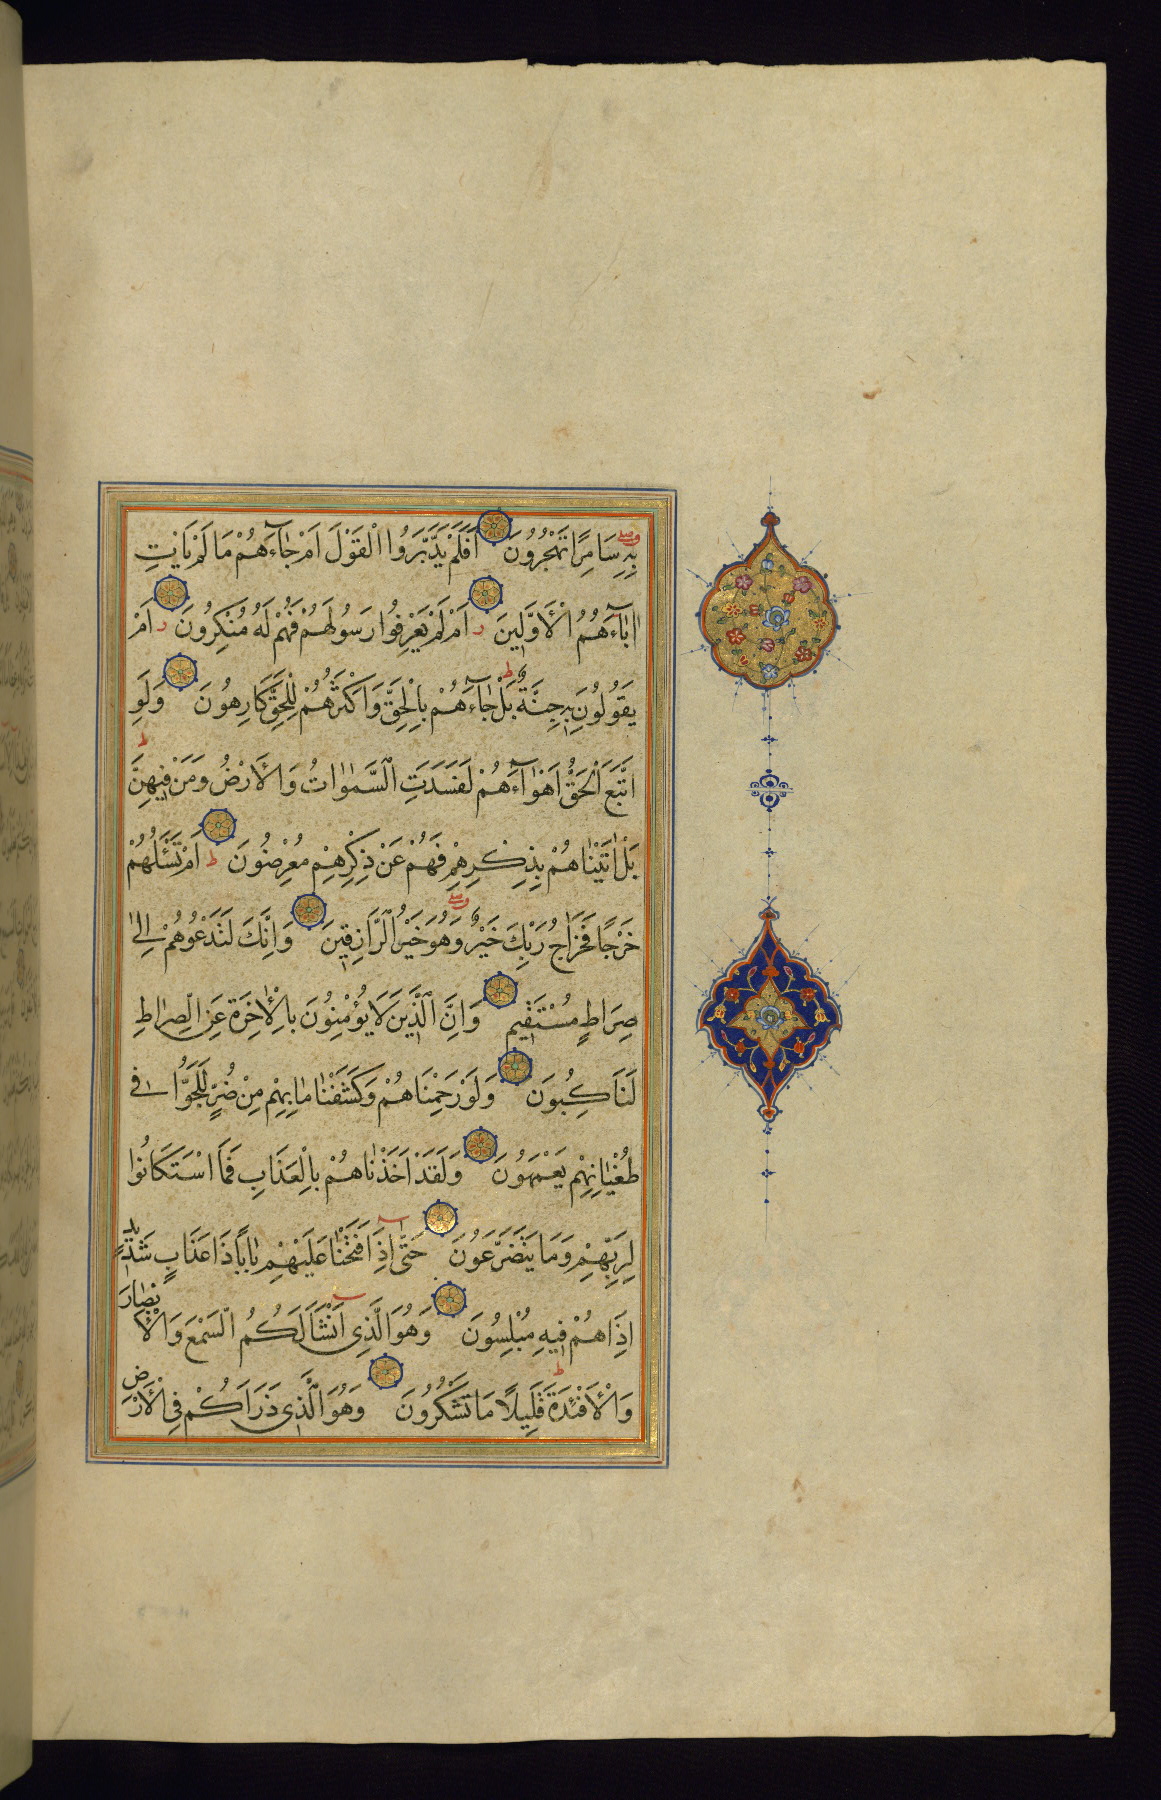 بِهِ سَامِرًا تَهْجُرُونَ اَفَلَمْ يَدَّبَّرَوُا الْقَوْلَ اَمْ جَاءَهُمْ مَا لَمْ يَاْتِ
اٰبَاءَهُمُ الْاَوَّلِينَ اَمْ لَمْ يَعْرِفُوا رَسُولَهُمْ فَهُمْ لَهُ مُنْكِرُونَ اَمْ
يَقُولُونَ بِهِ جِنَّةٌ بَلْ جَاءَهُمْ بِالْحَقِّ وَاَكْثَرُهُمْ لِلْحَقِّ كَارِهُونَ وَلَوِ
اتَّبَعَ الْحَقُّ اَهْوَاءَهُمْ لَفَسَدَتِ السَّمٰوَاتُ وَالْاَرْضُ وَمَنْ فِيهِنَّ
بَلْ اَتَيْنَاهُمْ بِذِكْرِهِمْ فَهُمْ عَنْ ذِكْرِهِمْ مُعْرِضُونَ اَمْ تَسْئَلُهُمْ
خَرْجًا فَخَرَاجُ رَبِّكَ خَيْرٌ وَهُوَ خَيْرُ الرَّازِقِينَ وَاِنَّكَ لَتَدْعُوهُمْ اِلٰى
صِرَاطٍ مُسْتَقِيمٍ وَاِنَّ الَّذِينَ لَا يُؤْمِنُونَ بِالْاٰخِرَةِ عَنِ الصِّرَاطِ
لَنَاكِبُونَ وَلَوْ رَحِمْنَاهُمْ وَكَشَفْنَا مَا بِهِمْ مِنْ ضُرٍّ لَلَجُّوا فِى
طُغْيَانِهِمْ يَعْمَهُونَ وَلَقَدْ اَخَذْنَاهُمْ بِالْعَذَابِ فَمَا اسْتَكَانُوا
لِرَبِّهِمْ وَمَا يَتَضَرَّعُونَ حَتّٰى اِذَا فَتَحْنَا عَلَيْهِمْ بَابًا ذَا عَذَابٍ شَدِيدٍ
اِذَا هُمْ فِيهِ مُبْلِسُونَ وَهُوَ الَّذِى اَنْشَاَ لَكُمُ السَّمْعَ وَالْاَبْصَارَ
وَالْاَفْئِدَةَ قَلِيلًا مَا تَشْكُرُونَ وَهُوَ الَّذِى ذَرَاَكُمْ فِى الْاَرْضِ